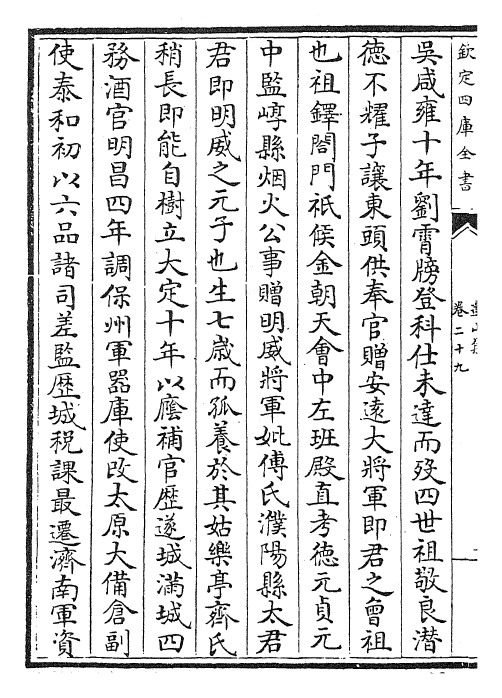 欽定四庫全書
卷二十九
吳咸雍十年劉霄牓登科仕未達而歿四世祖敬良潛
德不耀子讓東頭供奉官贈安遠大將軍即君之曾祖
也祖鐸閤門祇候金朝天會中左班殿直考德元貞元
中監崞縣烟火公事贈明威將軍妣傅氏濮陽縣太君
君即明威之元子也生七歲而孤養於其姑樂亭齊氏
稍長即能自樹立大定十年以廕補官歷遂城滿城四
務酒官明昌四年調保州軍器庫使改太原大備倉副
使泰和初以六品諸司差監歷城稅課最遷濟南軍資